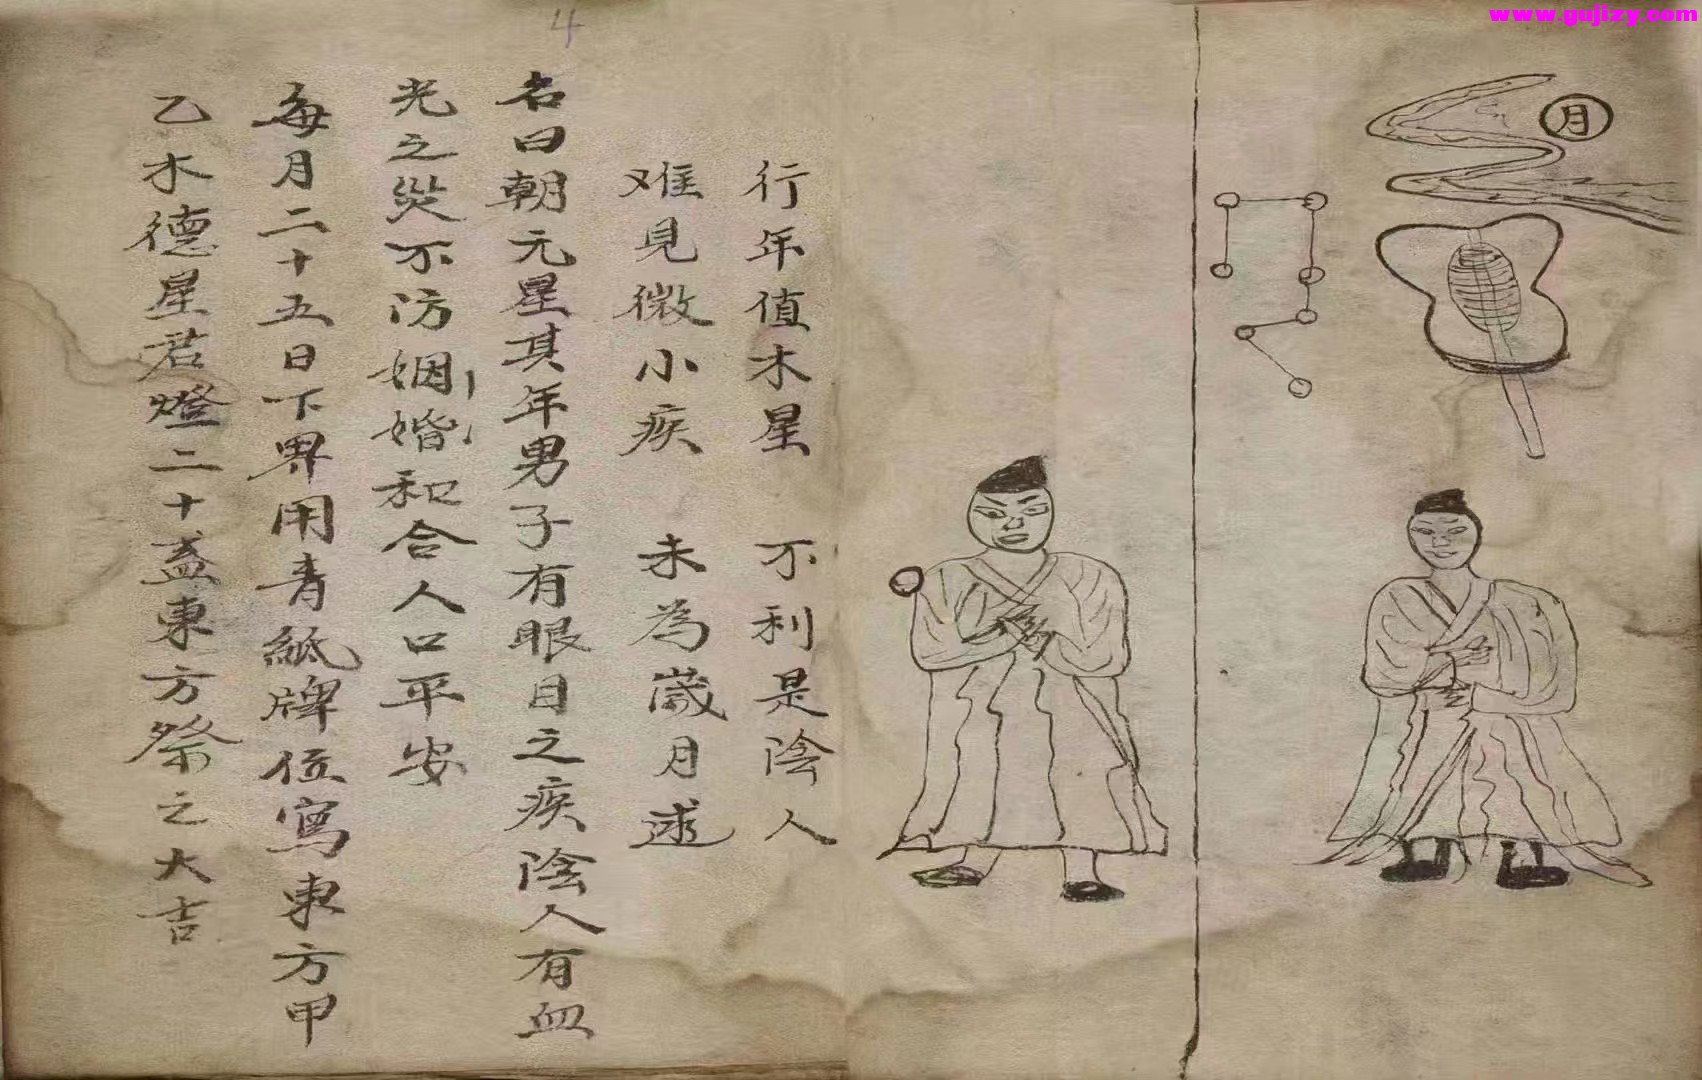 www.gujizy.com
4
月
行年值木星　不利是陰人
难見微小疾　未為歲月逑
名曰朝元星其年男子有眼目之疾陰人有血
光之災不防姻婚和合人口平安
每月二十五日下界用青紙牌位寫東方甲
乙木德星君燈二十盞東方祭之大吉